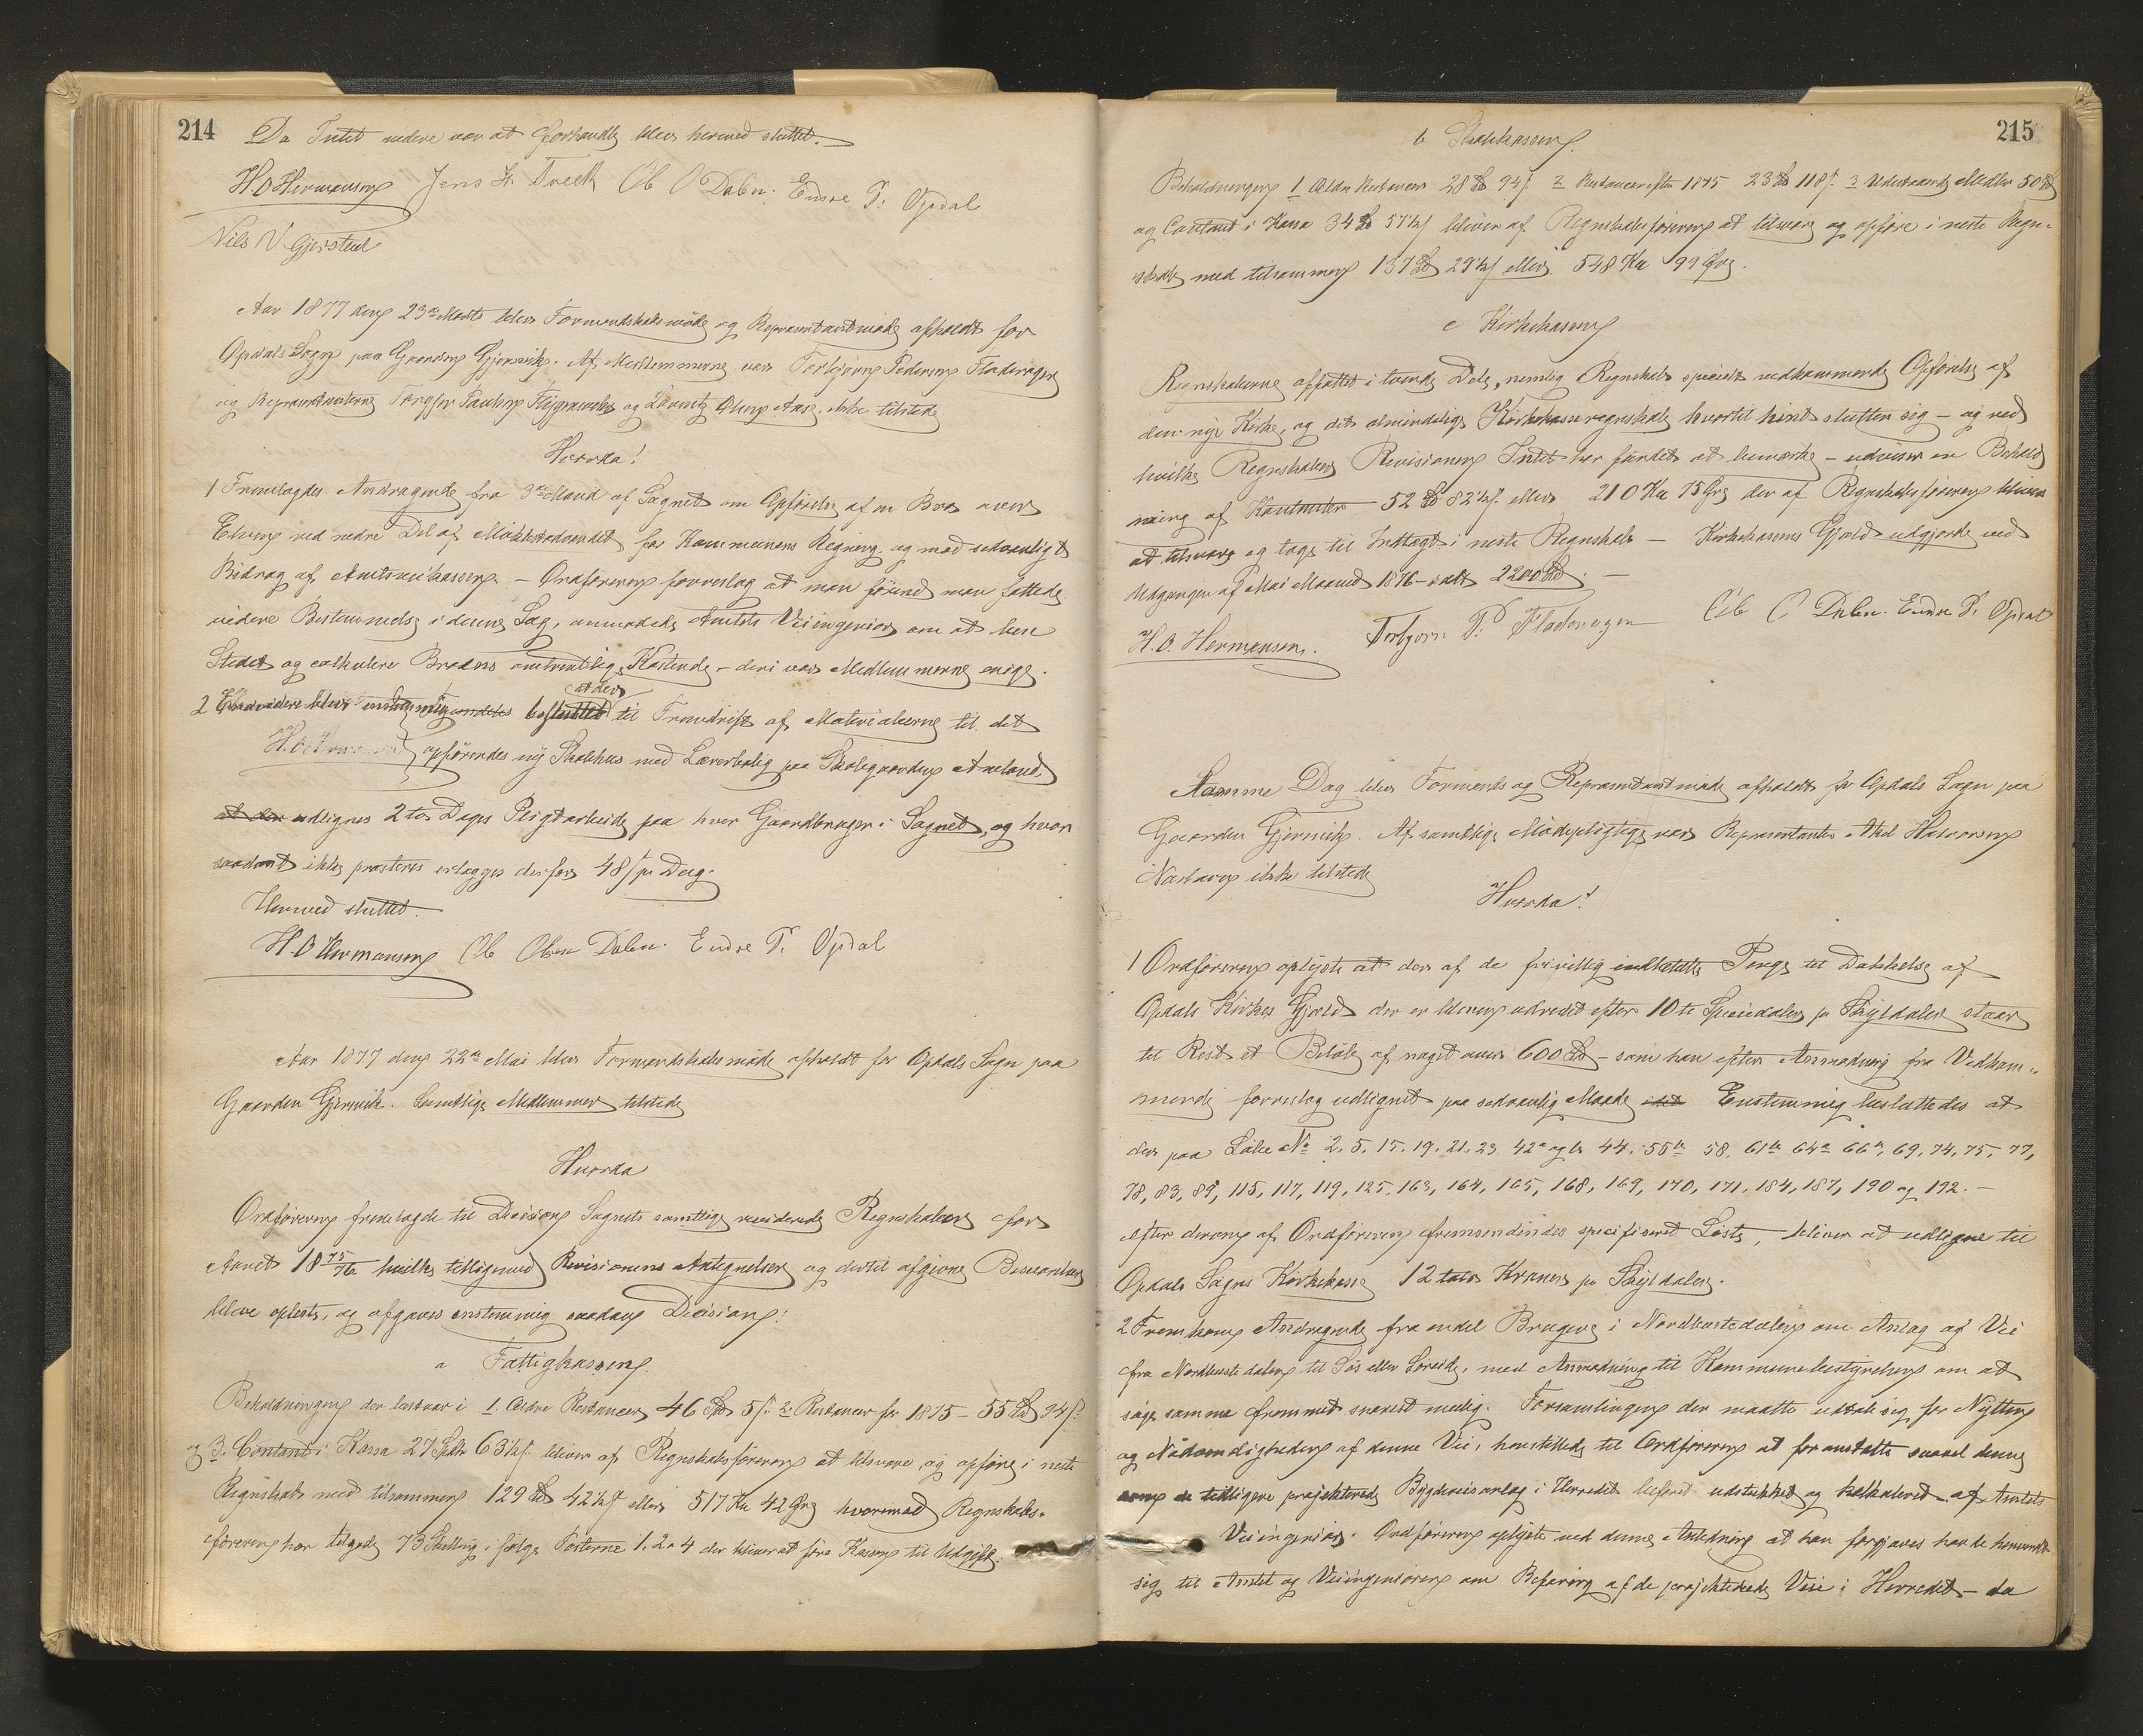 214
Da Intet videre var at forhandle blev hermed sluttet.
H. O Hermansen Jens H. Tveth Ole O Dalen. Endre P. Opdal
Nils N Gjerstad
Aar 1877 den 23de Marts blev Formandskabsmøde og Repræsentantmøde afholdt for
Opdals Sogn paa Gaarden Gjersvik. Af Medlemmerne var Torbjørn Pedersen Fladeragen
og Repræsentanterne og Lauritz Olsen Aase ikke tilstede
Hvorda!
1 Fremlagdes Andragende fra 3de Mænd af Sognet om Opførelse af en Bro over
Elven ved nedre Del af for Kommunens Regning og mod sedvanligt
Bidrag af Amtsveikassen. - Ordføreren foreslog at man førend man fattede
videre Bestemmelse i denne Sag, anmodede Amtets Veiingeniør om at bese
Stedet og calkulere Broens omtrentlige Kostende - deri var Medlemmerne enige.
at der
2 Endvidere blev enstemmig besluttet til Fremdrift af Materialerne til det
H. O Hermansen opførendes ny Skolehus med Lærerbolig paa Skolegaarden Ameland,
at der udlignes 2 to Dages Pligtarbeide paa hver Gaardbruger i Sognet, og hvor
saadant ikke præsteres erlægges derfor 48 ß pr Dag.
Hermed sluttet.
H. O Hermansen Ole Olsen Dalen. Endre P. Opdal
Aar 1877 den 22de Mai blev Formandskabsmøde afholdt for Opdals Sogn paa
Gaarden Gjersvik. Samtlige Medlemmer tilstede
Hvorda
Ordføreren fremlagde til Decision Sognets samtlige reviderede Regnskaber for
Aaret 1875/76 hvilke tilligemed Revisionens Antegnelser og dertil afgivne Besvarelser
bleve oplæste, og afgaves enstemmig saadan Decision:
a Fattigkassen.
Beholdningen der bestaar i 1. Ældre Restancer 46 Spd 5 ß. 2. Restancer for 1875 - 55 Spd 94 ß.
og 3. Contant i Kassa 27 Spdr 63½ ß. bliver af Regnskabsføreren at tilsvare og opføre i neste
Regnskab med tilsammen 129 Spd 42½ ß eller 517 Kr 42 Øre hvorimod Regnskabs-
føreren har tilgode 73 Skilling i følge Posterne 1, 2 & 4 der bliver at føre Kassen til Udgift.
215
b Skolekassen.
Beholdningen 1 Ældre Restancer 28 Spd 94 ß. 2 Restancer efter 1875 23 Spd 118 ß. 3 Udestaaende Midler 50 Spd
og Contant i Kassa 34 Spd 57½ ß bliver af Regnskabsføreren at tilsvare og opføre i neste Regn-
skab med tilsammen 137 Spd 29½ ß eller 548 Kr 99 Øre.
c Kirkekassen
Regnskaberne affattet i tvende Dele, nemlig Regnskab specielt vedkommende Opførelse af
den nye Kirke, og det almindelige Kirkekasseregnskab hvortil hint slutter sig - og ved
hvilke Regnskaber Revisionen Intet har fundet at bemærke - udviser en Behold
ning af Kontanter 52 Spd 82½ ß. eller 210 Kr 75 Øre der af Regnskabsføreren bliver
at tilsvare og tage til Indtægt i neste Regnskab - Kirkekassens Gjeld udgjorde ved
Udgangen af Mai Maaned 1876 - ialt 2200 Spd. -
H. O. Hermansen. Torbjørn P. Fladeragen Ole O Dalen. Endre P. Opdal
Samme Dag blev Formands og Repræsentantmøde afholdt for Opdals Sogn paa
Gaarden Gjersvik. Af samtlige Mødepligtige var Repræsentanten Halvorsen
ikke tilstede
Hvorda!
1 Ordføreren oplyste at der af de frivillig indbetalte Penge til Dækkelse af
Opdals Kirkes Gjeld der er bleven udredet efter 10 ti Speciedaler pr Skylddaler staar
til Rest et Beløb af noget over 600 Spd - som han efter Anmodning fra Vedkom-
mende foreslog udlignet paa sedvanlig Maade Enstemmig besluttedes at
der paa Løbe No 2, 5, 15, 19, 21, 23, 42a og b 44, 55b 58, 61b 64a 66a, 69, 74, 75, 77,
78, 83, 89, 115, 117, 119, 125, 163, 164, 165, 168, 169, 170, 171, 184, 187, 190 og 192. -
efter deraf af Ordføreren fremsendendes specificeret Liste, bliver at udligne til
Opdals Sogns Kirkekasse 12 tolv Kroner pr Skylddaler.
2 Fremkom Andragende fra endel Brugere i Nordbustedalen om Anlæg af Vei
fra Nordbustedalen til Søs eller Søreide, med Anmodning til Kommunebestyrelsen om at
søge samme fremmet snarest mulig. Forsamlingen der maatte udtale sig for Nytten
og Nødvendigheden af denne Vei, henstillede til Ordføreren at foranstalte saavel denne
som de tidligere projekterede Bygdeveianlæg i Herredet befaret udstukket og kalkuleret af Amtets
Veiingeniør. Ordføreren oplyste ved denne Anledning at han forgjæves havde henvendt
sig til Amtet og Veiingeniøren om Befaring af de projekterede Veie i Herredet - da